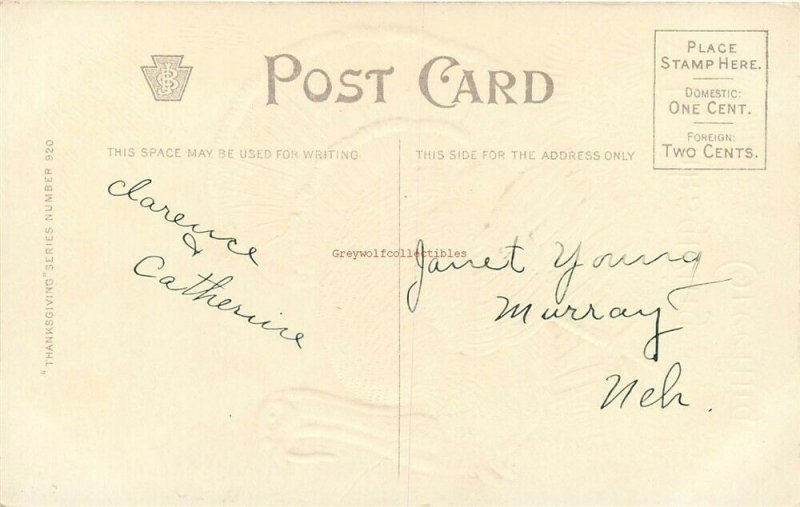 POST CARD
PLACE
STAMP HERE.
DOMESTIC:
ONE CENT.
FOREIGN:
TWO CENTS.
THIS SPACE MAY BE USED FOR WRITING
THIS SIDE FOR THE ADDRESS ONLY
"THANKSGIVING" SERIES NUMBER 920
Clarence
&
Catherine
Greywolfcollectibles
Janet Young
Murray
Neb.